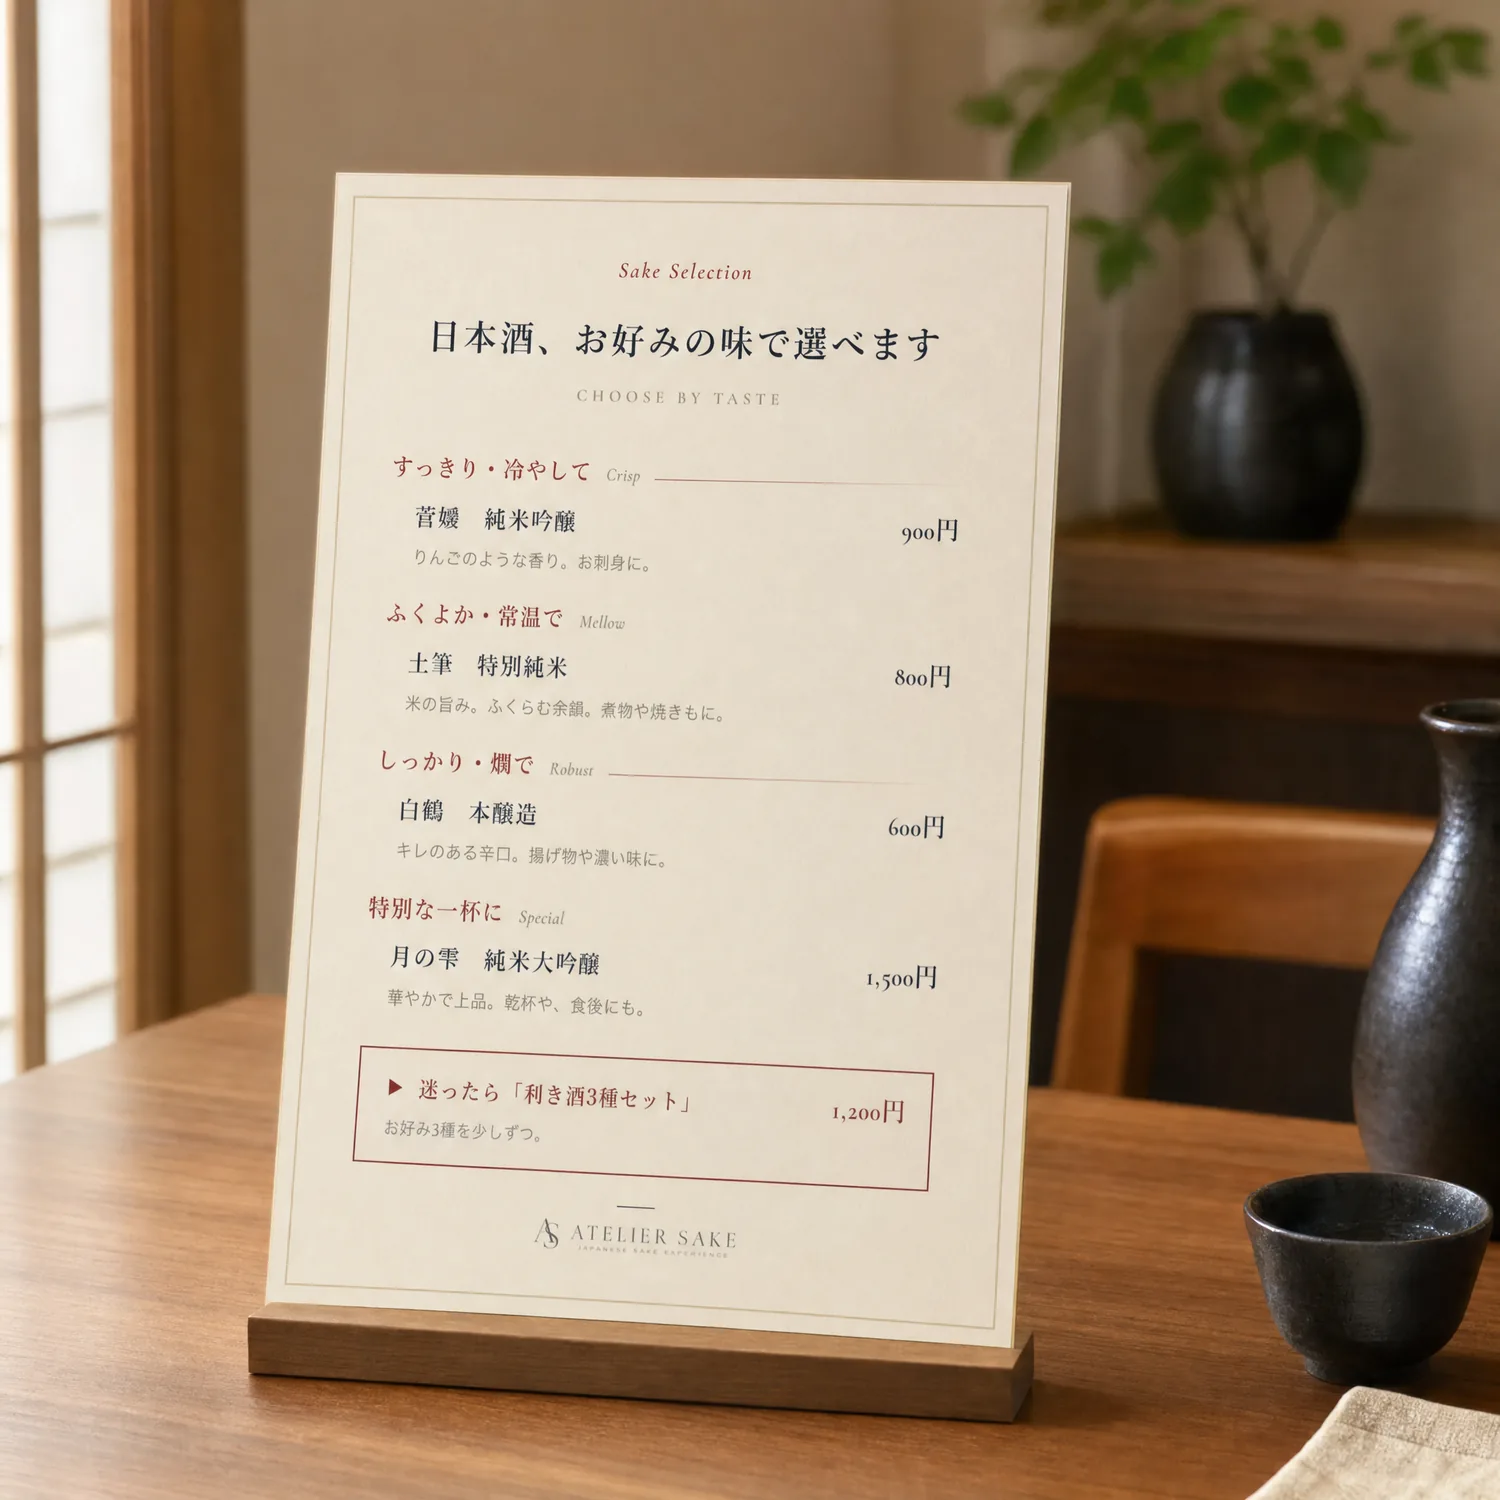 Sake Selection
日本酒、お好みの味で選べます
CHOOSE BY TASTE
すっきり・冷やして Crisp
菅媛 純米吟醸 900円
りんごのような香り。お刺身に。
ふくよか・常温で Mellow
土筆 特別純米 800円
米の旨み。ふくらむ余韻。煮物や焼きもに。
しっかり・燗で Robust
白鶴 本醸造 600円
キレのある辛口。揚げ物や濃い味に。
特別な一杯に Special
月の雫 純米大吟醸 1,500円
華やかで上品。乾杯や、食後にも。
▶ 迷ったら「利き酒3種セット」 1,200円
お好み3種を少しずつ。
AS ATELIER SAKE
JAPANESE SAKE EXPERIENCE